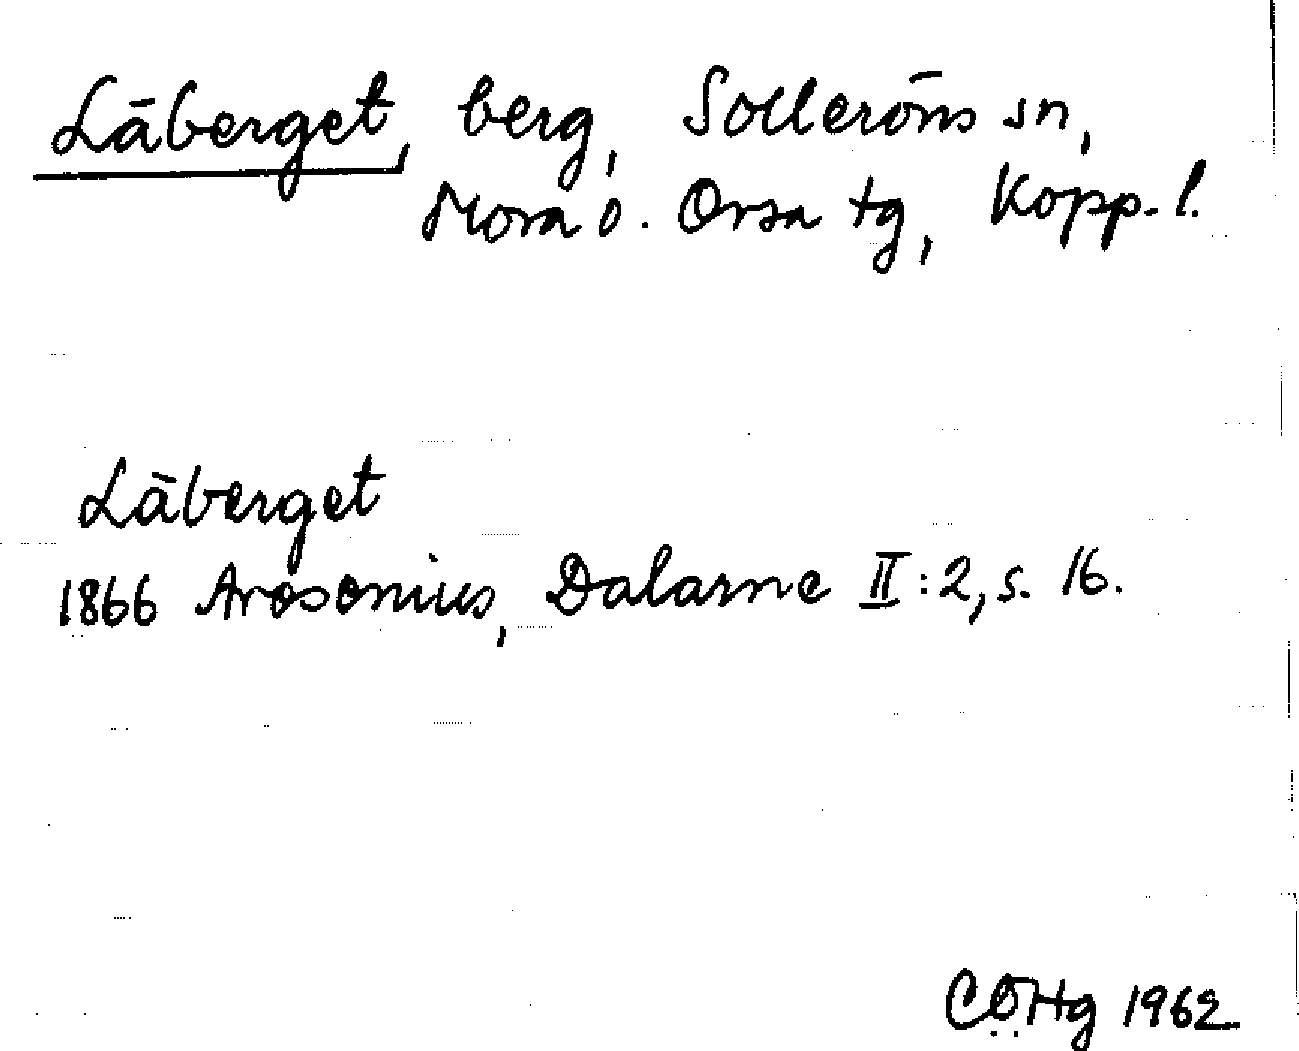 Läberget, berg, Solleröns sn,
Mora o. Orsa tg, Kopp. l.
Läberget
1866 Arosenius, Dalarne II:2, s. 16.
CÖHg 1962